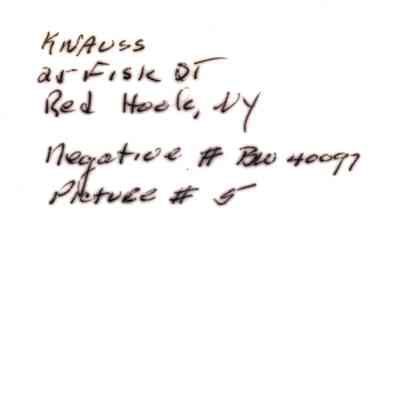 KNAUSS
25 Fisk ST
Red Hook, NY
Negative # BW 40097
Picture # 5